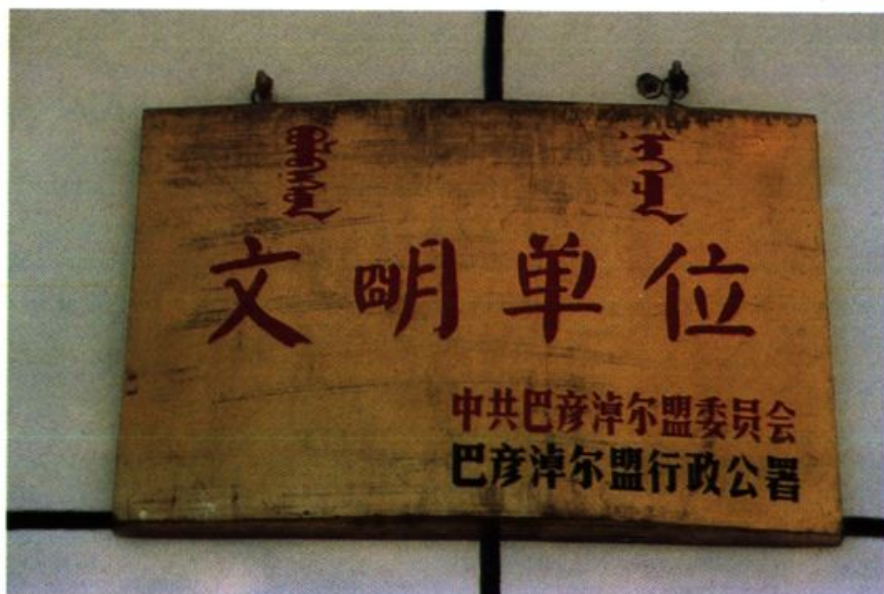 文朙单位
中共巴彦淖尔盟委员会
巴彦淖尔盟行政公署